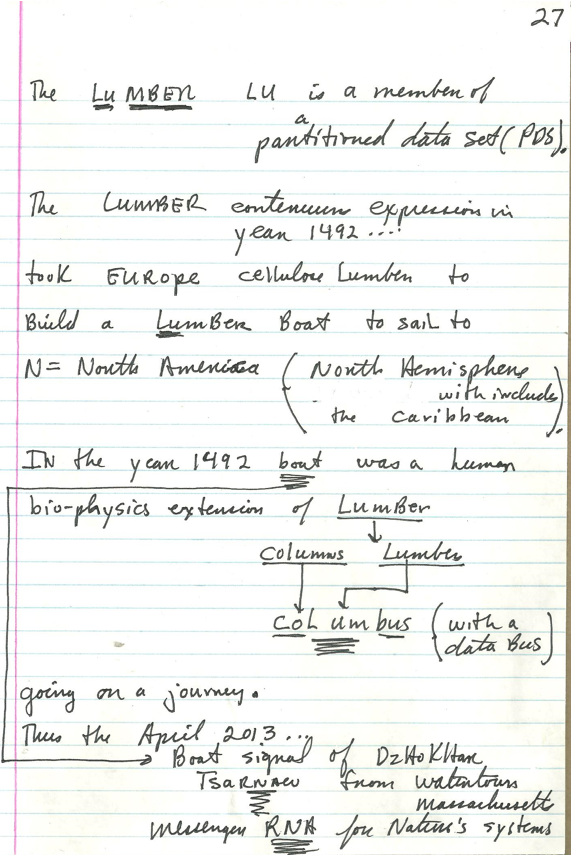 27
The LuMBER LU is a member of
a
partitioned data set (PDS).
The LUMBER contenuum expression in
year 1492 ....
took EUROPE cellulose Lumber to
Build a LumBer Boat to sail to
N= North America ( North Hemisphere
with include
the Caribbean ).
IN the year 1492 boat was a human
bio-physics extension of LumBer
Columns Lumber
CoLumbus (with a
data Bus)
going on a journey.
Thus the April 2013...
Boat signal of DzHoKHar
TsaRNAev from watertown
massachusetts
messenger RNA for Nature's systems